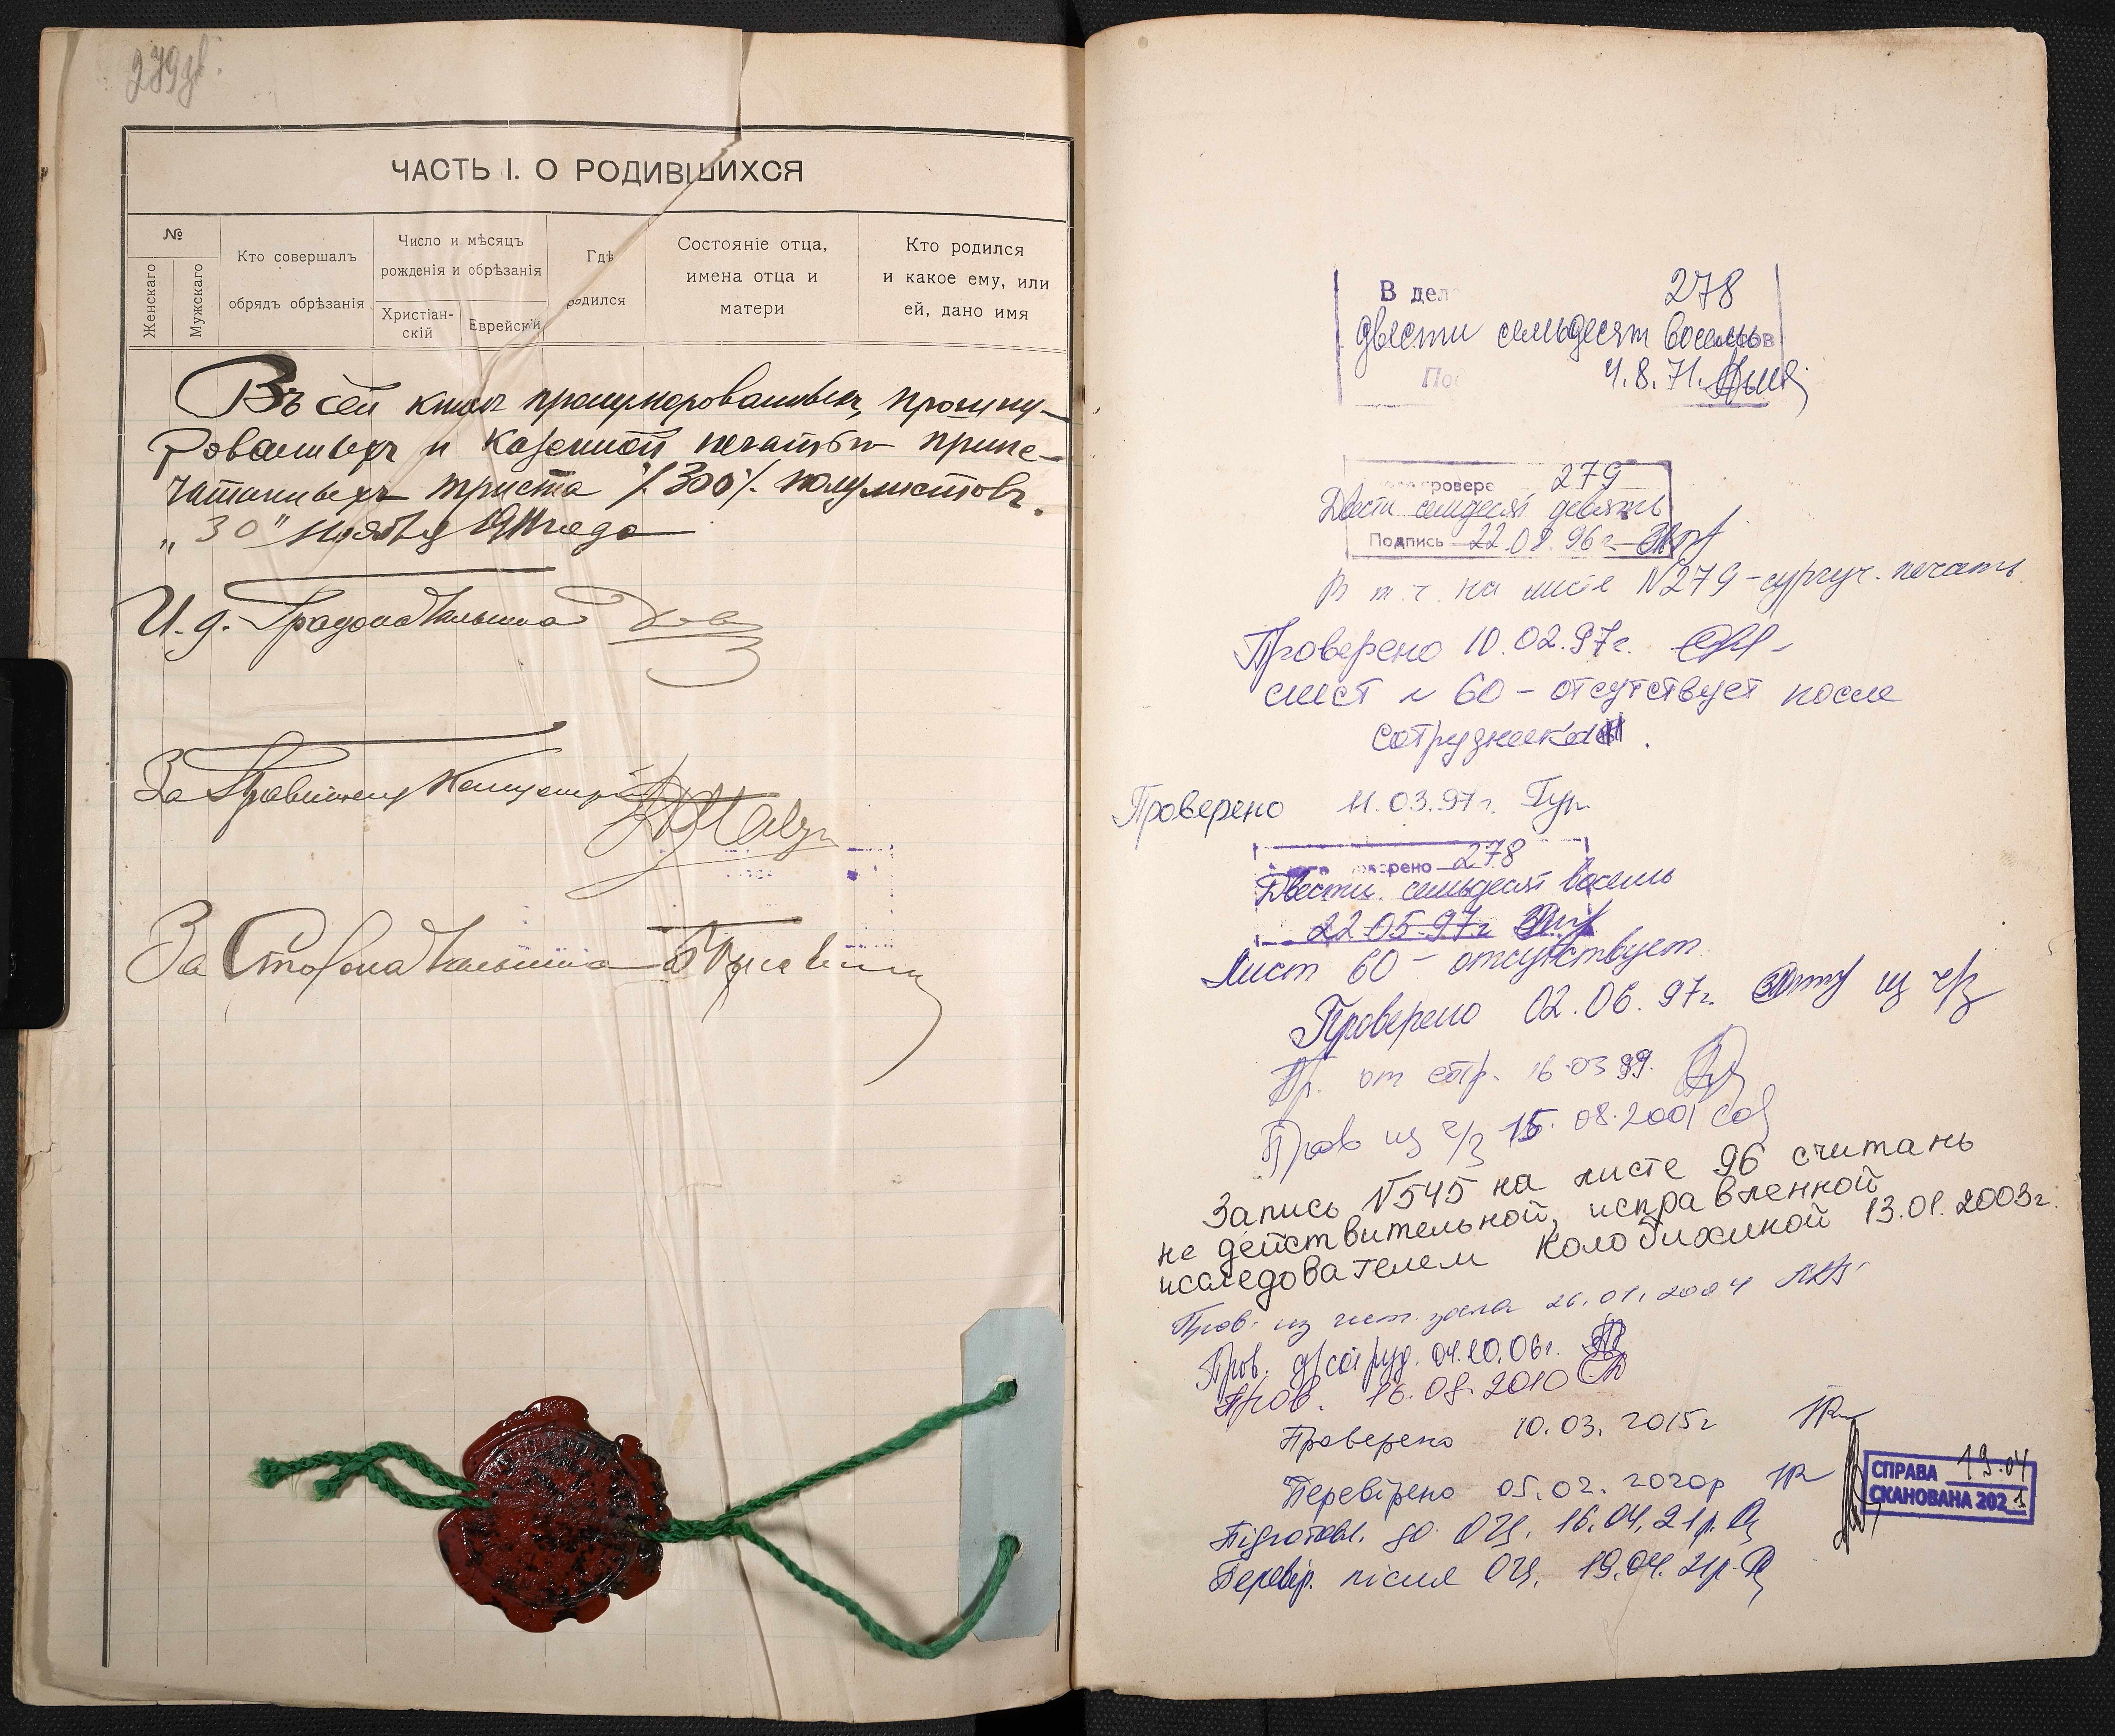 279 об.
ЧАСТЬ I. О РОДИВШИХСЯ
№
Женскаго
Мужскаго
Кто совершалъ
обрядъ обрѣзанія
Число и мѣсяцъ
рожденія и обрѣзанія
Христіан-
скій
Еврейскій
Гдѣ
родился
Состояніе отца,
имена отца и
матери
Кто родился
и какое ему, или
ей, дано имя
Въ сей книгѣ пронумерованныхъ, прошну-
рованныхъ и казенной печатью припе-
чатанныхъ триста /300/ полулистовъ.
„30" ноября 1911 года
И. д. Градоначальника
За Правителя Канцеляріи
За Столоначальника
В дел 278
двести семьдесят восемь
4.8.71.
провере 279
Двести семдесят девять
Подпись 22.08.96г.
В т.ч. на листе N279 - сургуч. печать
Проверено 10.02.97г.
лист N 60 - отсутствует после
сотрудника
Проверено 11.03.97г.
278
Двести семьдесят восемь
22.05.97г
Лист 60 - отсутствует.
Проверено 02.06.97г. из ч/з
Пр. от сотр. 16.03.99.
Пров из ч/з 15.08.2001
Запись N545 на листе 96 считать
не действительной, исправленной
исследователем Колобихиной 13.01.2003г.
Пров. из чит. зала 26.01.2004
Пров. от сотруд. 04.10.06г.
Пров. 16.08.2010
Проверено 10.03.2015г
Перевірено 05.02.2020р
СПРАВА 19.04
СКАНОВАНА 2021
Підготовл. до ОЦ. 16.04.21р.
Перевір. після ОЦ. 19.04.21р.